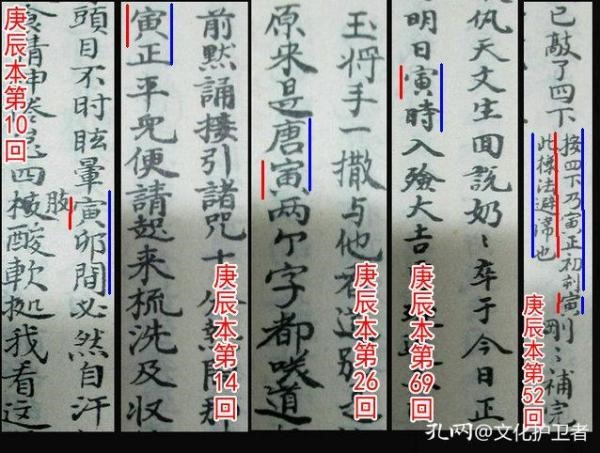 頭目不时眩暈寅卯間必然自汗
食精神倦怠四肢酸軟㨿我看这
庚辰本第10回
前默誦接引諸咒十分熱鬧那
寅正平兒便請起来梳洗及収
庚辰本第14回
玉将手一撒与他看道
原来是唐寅两个字都咲道
庚辰本第26回
天文生回說奶〻卒于今日正
明日寅時入殮大吉
庚辰本第69回
已敲了四下
按四下乃寅正初刻寅
此樣法避諱也
剛〻補完
庚辰本第52回
孔网@文化护卫者